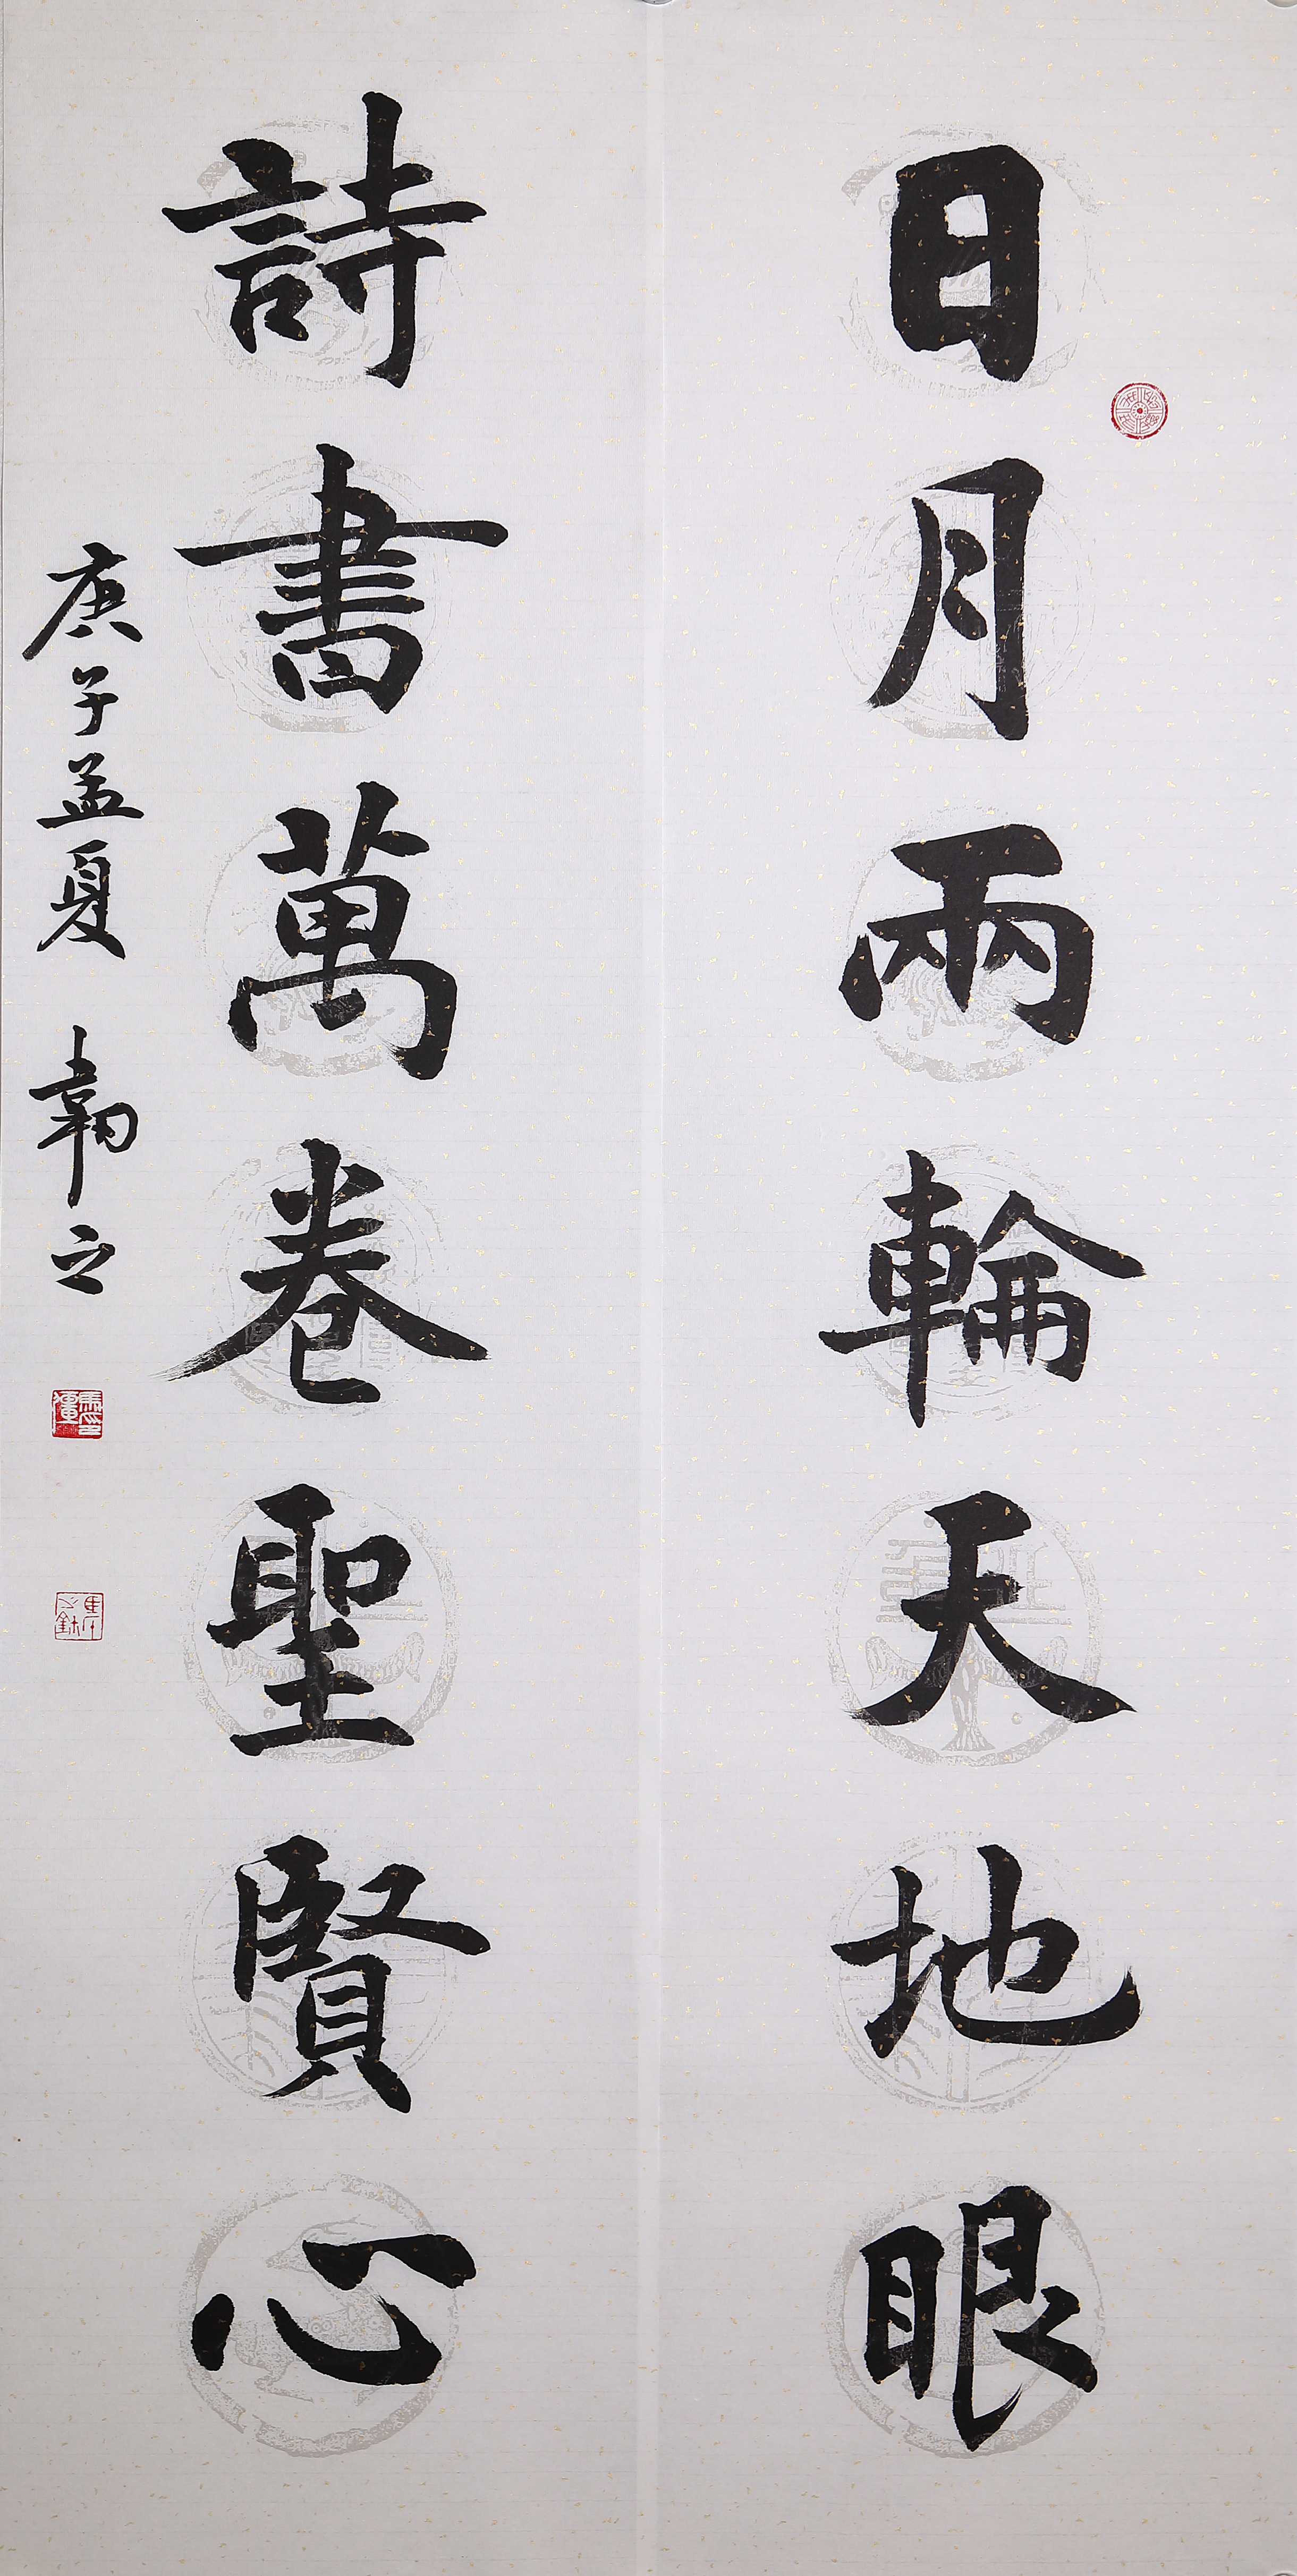 日月兩輪天地眼
詩書萬卷聖賢心
庚子孟夏 韌之